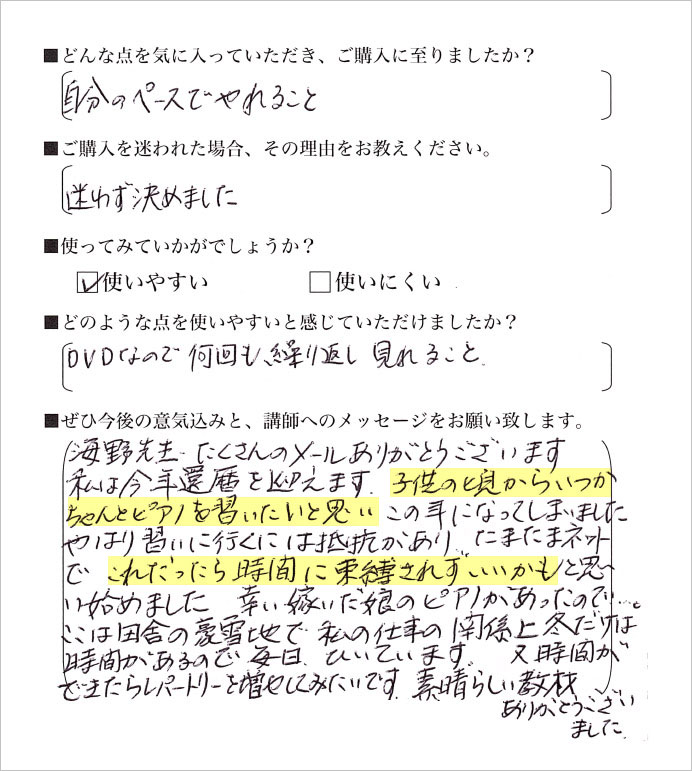 ■どんな点を気に入っていただき、ご購入に至りましたか？
自分のペースでやれること
■ご購入を迷われた場合、その理由をお教えください。
迷わず決めました
■使ってみていかがでしょうか？
☑使いやすい　□使いにくい
■どのような点を使いやすいと感じていただけましたか？
DVDなので何回も繰り返し見れること.
■ぜひ今後の意気込みと、講師へのメッセージをお願い致します。
海野先生 たくさんのメールありがとうございます
私は今年還暦を迎えます. 子供の頃からいつか
ちゃんとピアノを習いたいと思い この年になってしまいました
やはり習いに行くには抵抗があり.. たまたまネット
で これだったら時間に束縛されずいいかもと思
い始めました 幸い嫁いだ娘のピアノがあったので…。
ここは田舎の豪雪地で 私の仕事の関係上冬だけは
時間があるので 毎日 ひいています. 又時間が
できたらレパートリーを増やしてみたいです. 素晴らしい教材
ありがとうござい
ました.